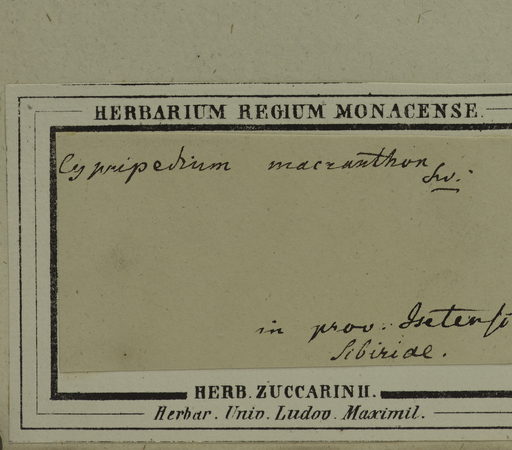 HERBARIUM REGIUM MONACENSE.
Cypripedium macranthon
Sw.
in prov. Isetensi
Sibiriae.
HERB. ZUCCARINII.
Herbar. Univ. Ludov. Maximil.